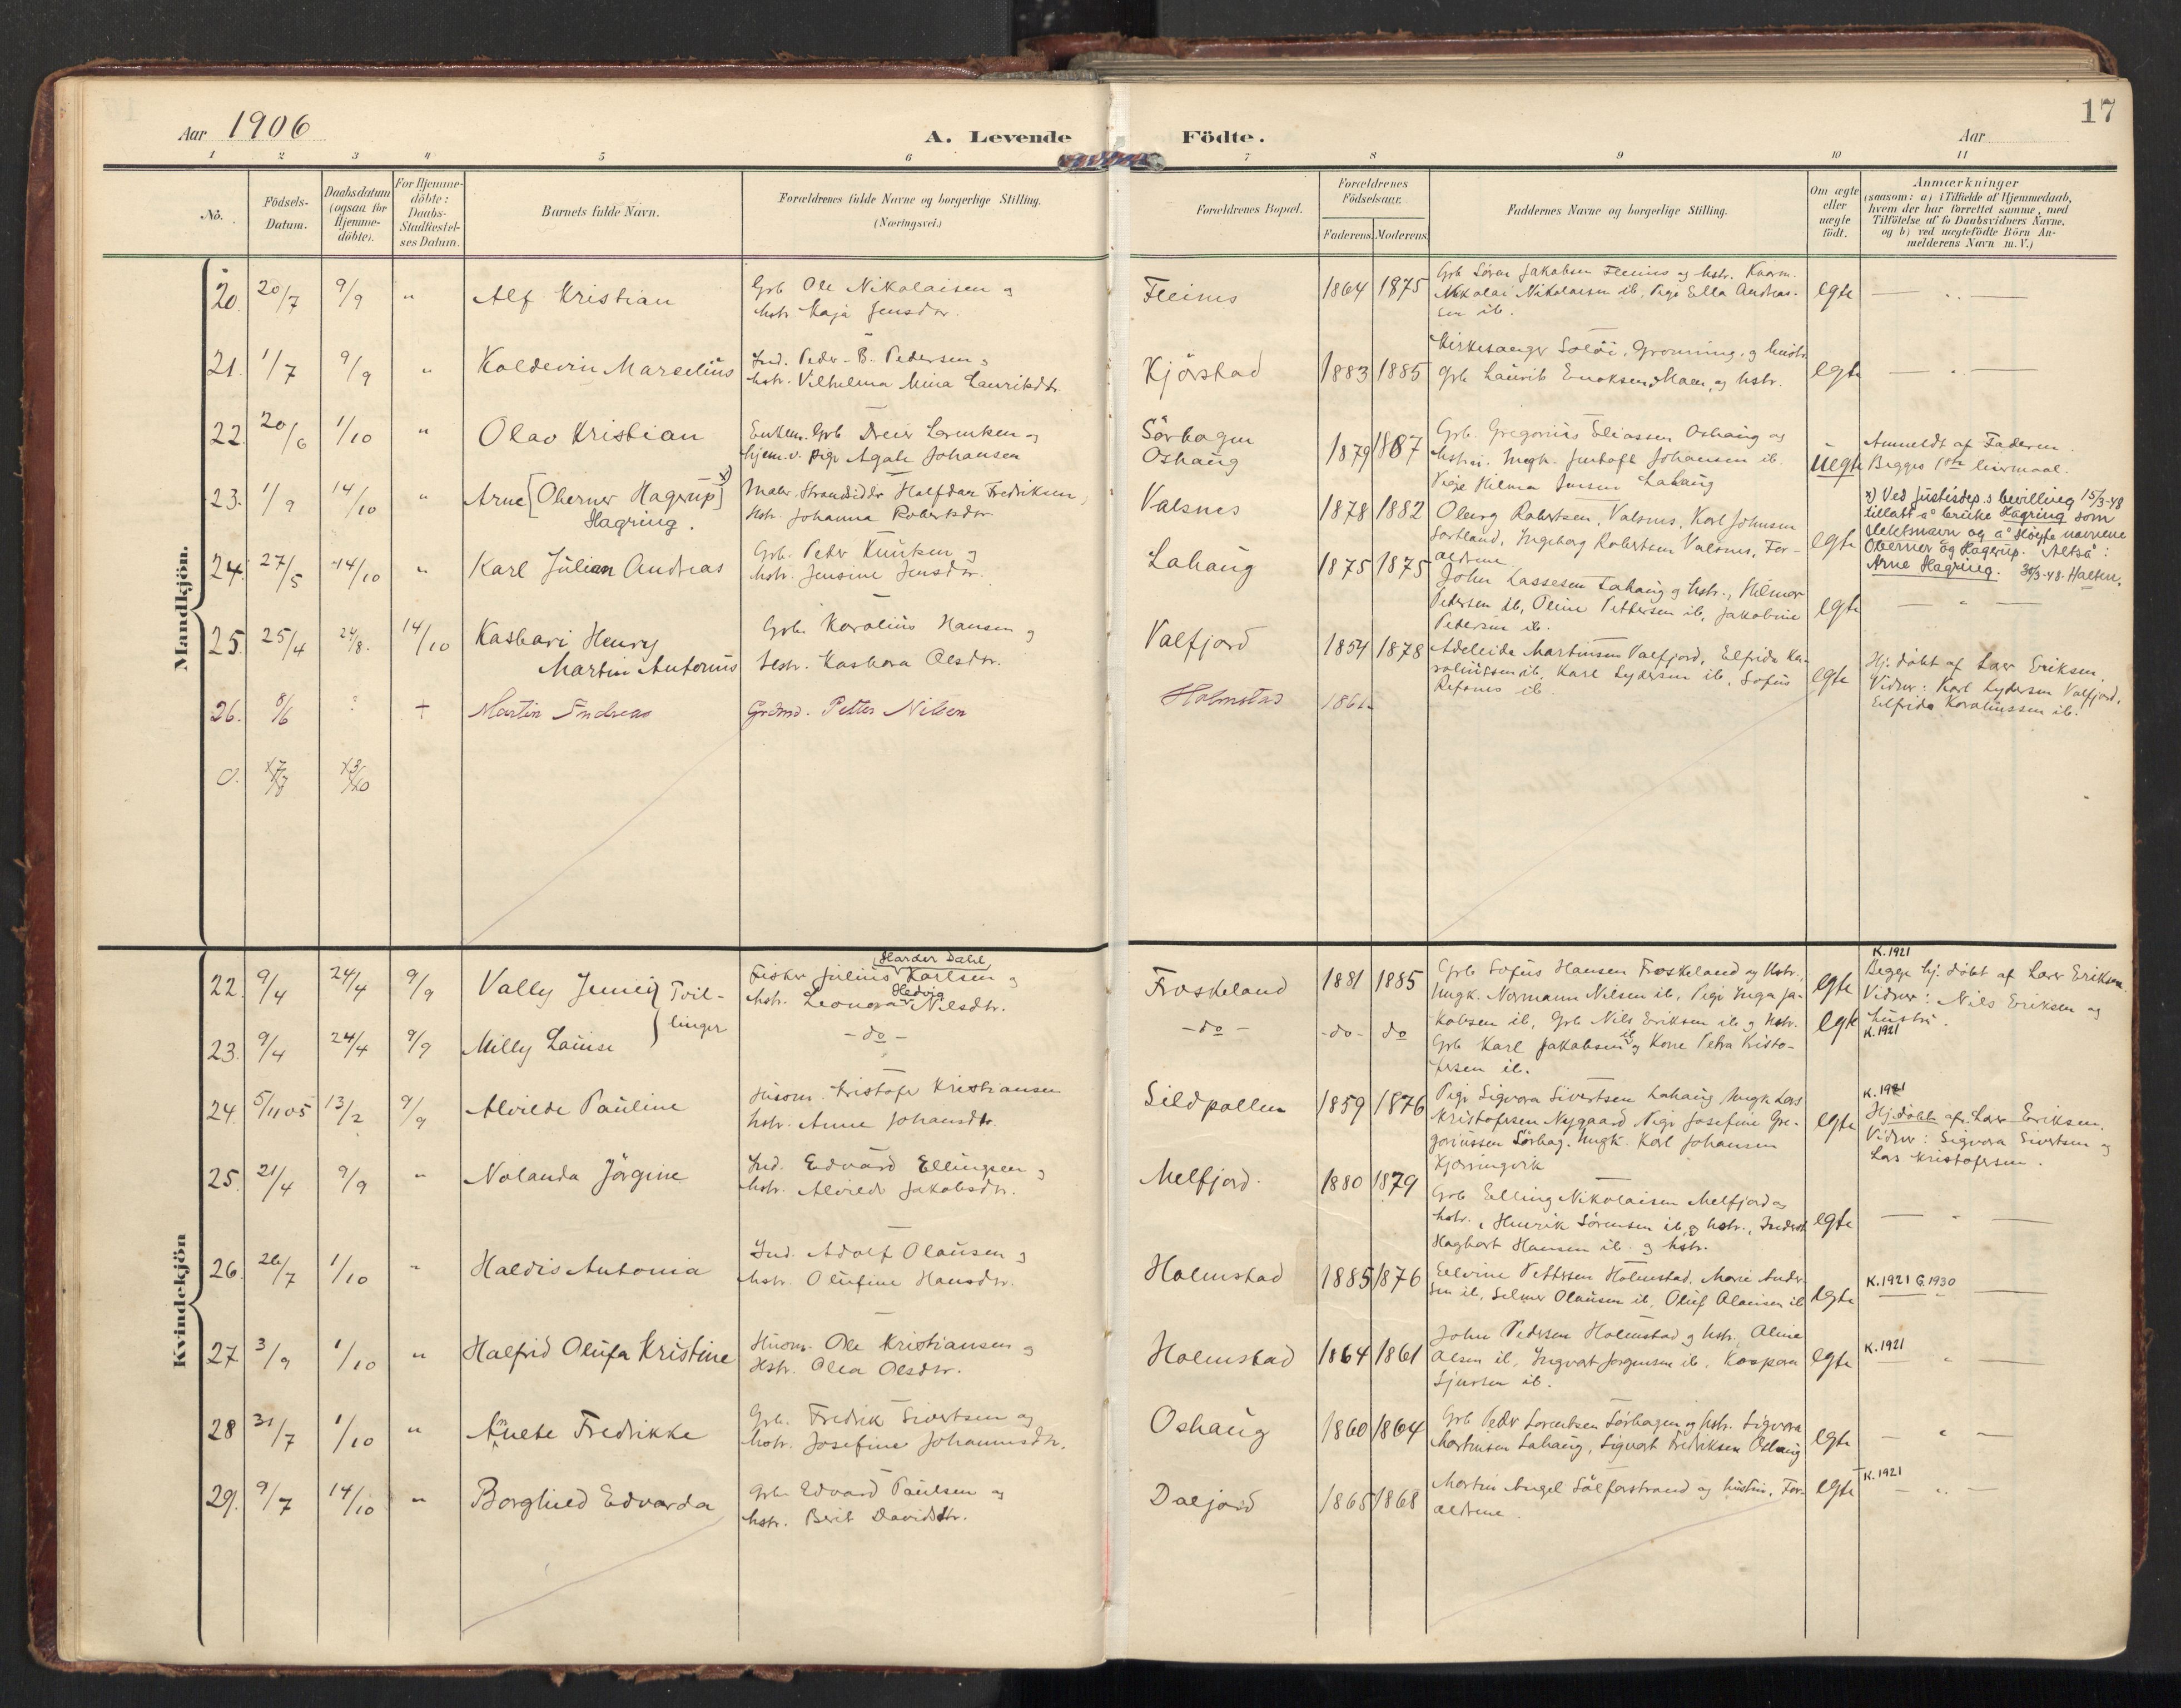 17
Aar 1906
A. Levende Födte.
Aar
1 2 3 4 5 6 7 8 9 10 11
No.
Födsels-Datum.
Daabsdatum (ogsaa for Hjemme-döbte).
For Hjemme-döbte: Daabs-Stadfæstel-ses Datum.
Barnets fulde Navn.
Forældrenes fulde Navne og borgerlige Stilling. (Næringsvei.)
Forældrenes Bopæl.
Forældrenes Födselsaar.
Faderens. Moderens.
Faddernes Navne og borgerlige Stilling.
Om ægte eller uægte födt.
Anmærkninger
(saasom: a) i Tilfælde af Hjemmedaab,
hvem der har forrettet samme, med
Tilföielse af to Daabsvidners Navne.
og b) ved uægtefödte Börn An-
melderens Navn m. V.)
Mandkjön.
20. 20/7 9/9 " Alf Kristian
Grb Ole Nikolaisen og
hstr. Kaja Jensdtr.
Fleines 1864 1875
Grb Sören Jakobsen Fleines og hstr. Kaarm.
Nikolai Nikolaisen ib, Pige Ella Andreas-
sen ib.
egte — " —
21. 1/7 9/9 " Koldevin Marselius
Ind. Peder B. Pedersen og
hstr. Vilhelmina Mina Lauritsdtr.
Kjörstad 1883 1885
Kirkesanger Solöi, Grönning, og hustr.
Grb Laurits Enoksen, Maen, og hstr.
egte — " —
22. 20/6 1/10 " Olav Kristian
Enkem. Grb Dreier Lorentsen og
hjem.v. pige Agate Johansen
Sörhagen
Oshaug 1879 1887
Grb. Gregorius Eliassen Oshaug og
hstru. Ungk. Jentoft Johansen ib.
Pige Helma Jensen Lahaug
uegte
Anmeldt af Faderen.
Begges 1ste leiermaal.
23. 1/9 14/10 " Arne [Oberner Hagerup] x)
Hagring.
Maler. Strandsidder Halfdan Fredriksen,
Hstr. Johanna Robertsdtr.
Valsnes 1878 1882
Olueg Robertsen, Valsnes, Karl Johnsen
Sortland, Ingeborg Robertsen Valsnes, For-
ældrene.
egte
x) Ved justisdep.s bevilling 15/3-48
tillatt å bruke Hagring som
slektsnavn og å slöyfe navnene
Oberner og Hagerup. Altså:
Arne Hagring. 30/3-48. Halsen.
24. 27/5 14/10 " Karl Julian Andreas
Grb. Peder Knutsen og
hstr. Jensine Jensdtr.
Lahaug 1875 1875
John Lassesen Lahaug og hstr., Hilmar
Pedersen ib, Oline Pettersen ib, Jakobine
Pedersen ib.
egte — " —
25. 25/4 24/8. 14/10 Kasbari Henry
Martin Antonius
Grb. Karolius Hansen og
hstr. Kaspara Olsdtr.
Valfjord 1854 1878
Adeleida Martinsen Valfjord, Elfrida Ka-
roliussen ib, Karl Lydersen ib, Sofus
Refsnes ib.
egte
Hj. döbt af Lær Eriksen.
Vidner: Karl Lydersen Valfjord,
Elfrida Karoliussen ib.
26. 8/6 ? + Martin Andreas
Grdmd. Petter Nilsen
Holmstad 1861
Kvindekjön
22. 9/4 24/4 9/9 Vally Jenny } Tvil-
Harder Dahl
Fisker Julius Karlsen og
Hedvig
hstr. Leonora Nilsdtr.
Froskeland 1881 1885
Grb Sofus Hansen Froskeland og hstr,
Ungk. Normann Nilsen ib, Pige Inga Ja-
kobsen ib, Grb Nils Eriksen ib og hstr.
Grb Karl Jakobsen ib og Kone Petra Kristo-
fersen ib.
egte
K. 1921
Begge hj. döbt af Lærer Eriksen
Vidner: Nils Eriksen og
hustru.
23. 9/4 24/4 9/9 Milly Louise } linger
- do -
- do - - do - do
egte K. 1921
24. 5/11 05 13/2 9/9 Alvilde Pauline
Husm. Kristofer Kristiansen
hstr. Anne Johansdtr.
Sildpollen 1859 1876
Pige Sigvora Sivertsen Lahaug Ungk Lars
Kristofersen Nygaard Pige Josefine Gre-
goriussen Sörhag. Ungk. Karl Johansen
Kjörringvik
egte
K. 1921
Hj.döbt af Lær Eriksen.
Vidner: Sigvora Sivertsen og
Lars Kristofersen.
25. 21/4 9/9 " Nolanda Jörgine
Ind. Edvard Ellingsen og
hstr. Alvilde Jakobsdtr.
Melfjord. 1880 1879
Grb Elling Nikolaisen Melfjord og
hstr., Henrik Sörensen ib og hstr., Inderst
Hagbart Hansen ib og hstr.
egte — " —
26. 26/7 1/10 " Haldis Antonia
Ind. Adolf Olausen og
hstr. Olufine Hansdtr.
Holmstad 1885 1876
Edvine Pettersen Holmstad. Marie Ander-
sen ib, Selmer Olausen ib, Oluf Olausen ib
egte K. 1921 G. 1930
27. 3/9 1/10 " Halfrid Olufa Kristine
Husm. Ole Kristiansen og
Hstr. Olea Olsdtr.
Holmstad 1864 1861
John Pedersen Holmstad og hstr. Aline
Olsen ib, Ingvart Jörgensen ib, Kaspara
Sjursen ib.
egte K. 1921 — " —
28 31/7 1/10 " Anete Fredrikke
Grb. Fredrik Sivertsen og
hstr. Josefine Johannesdtr.
Oshaug 1860 1864
Grb Peder Lorentsen Sörhagen og hstr. Sigvora
Martinsen Lahaug, Sigvart Fredriksen Oshaug
egte — " —
29. 9/7 14/10 " Borghild Edvarda
Grb. Edvard Paulsen og
hstr. Berit Davidsdtr.
Daljord 1865 1868
Martin Angel Sölferstrand og hustru, For-
ældrene.
egte K. 1921 — " —